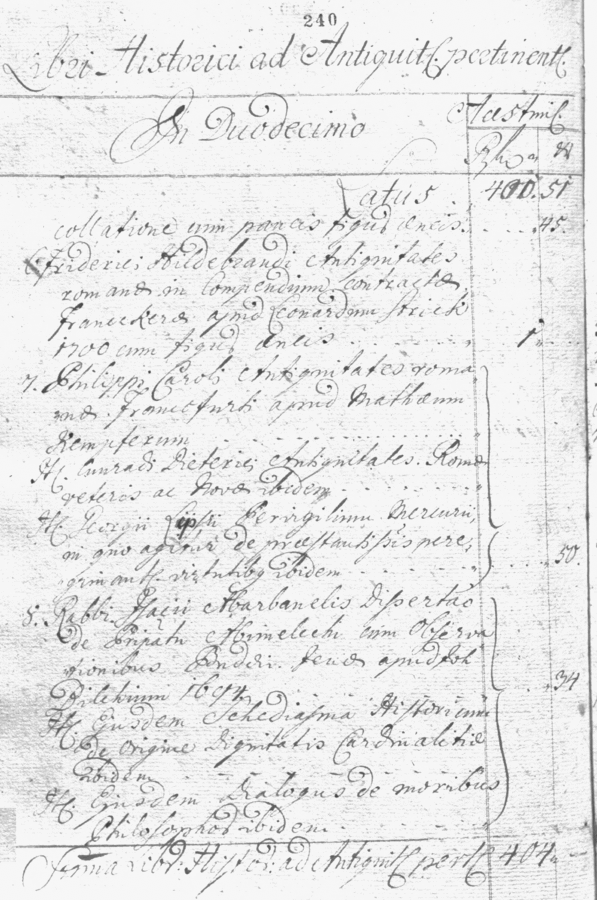 240
Libri Historici ad Antiquit. pertinent.
In Duodecimo
Aestim.
Rh. x
Latus . 400. 51
collatione cum paucis figuris aeneis. . . . 45.
6. Friderici Hildebrandi Antiquitates
romanae in Compendium Contractae
Franekerae apud Leonardum Strick
1700 cum figuris aeneis . . . . 1
7. Philippi Caroli Antiquitates roma
nae. Francfurti apud Mathaeum
Kempferum . . . .
It. Cunradi Dieterici Antiquitates. Romae
veteris ac Novae ibidem
It. Georgii Lipsii Pervigilium Mercurii,
in quo agitur de praestantissis pere,
grinant. virtutibq ibidem . . . . 50.
8. Rabbi Isacii Abarbanelis Dissertao
de Abimelechi cum Observa
tionibus Jenae apud Joh
Bilckium 1694 . . . . 34
It. Ejusdem Schediasma Historicum
de Origine Dignitatis Cardinalitiae
ibidem
It. Ejusdem Dialogus de moribus
Philosophor ibidem . . . .
Suma Libr: Histor: ad Antiquit. pert. 404